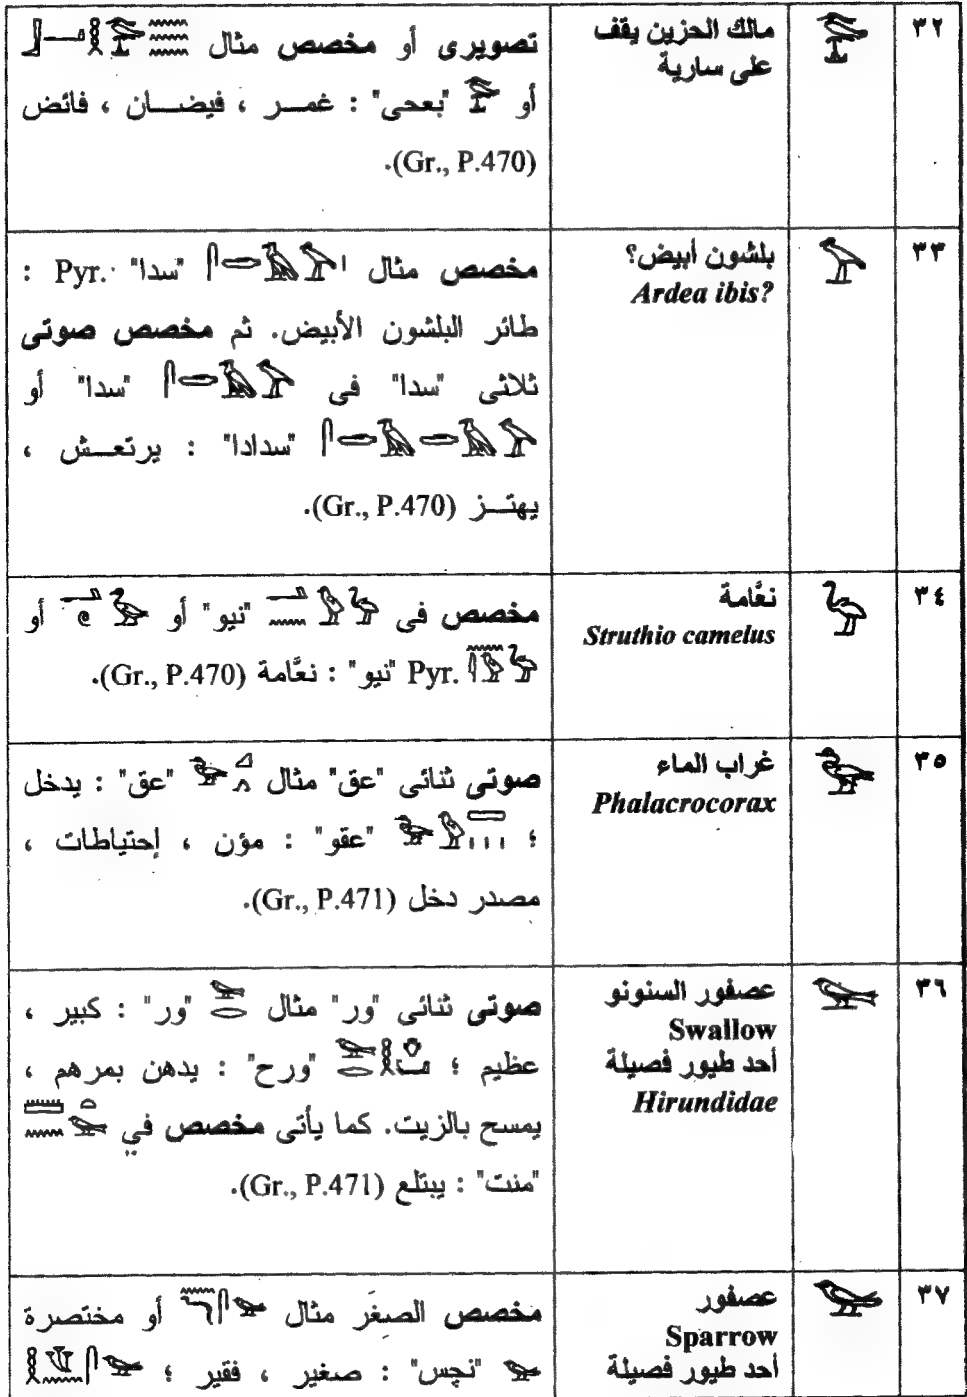 ٣٢
مالك الحزين يقف
على سارية
تصويرى أو مخصص مثال
أو "بعحى" : غمر ، فيضان ، فائض
(Gr., P.470).
٣٣
بلشون أبيض؟
Ardea ibis?
مخصص مثال "سدا" Pyr. :
طائر البلشون الأبيض. ثم مخصص صوتى
ثلاثى "سدا" فى "سدا" أو
"سدادا" : يرتعش ،
يهتز (Gr., P.470).
٣٤
نعَّامة
Struthio camelus
مخصص فى "نيو" أو أو
Pyr. "نيو" : نعَّامة (Gr., P.470).
٣٥
غراب الماء
Phalacrocorax
صوتى ثنائى "عق" مثال "عق" : يدخل
؛ "عقو" : مؤن ، إحتياطات ،
مصدر دخل (Gr., P.471).
٣٦
عصفور السنونو
Swallow
أحد طيور فصيلة
Hirundidae
صوتى ثنائى "ور" مثال "ور" : كبير ،
عظيم ؛ "ورح" : يدهن بمرهم ،
يمسح بالزيت. كما يأتى مخصص في
"منت" : يبتلع (Gr., P.471).
٣٧
عصفور
Sparrow
أحد طيور فصيلة
مخصص الصغَر مثال أو مختصرة
"نچس" : صغير ، فقير ؛